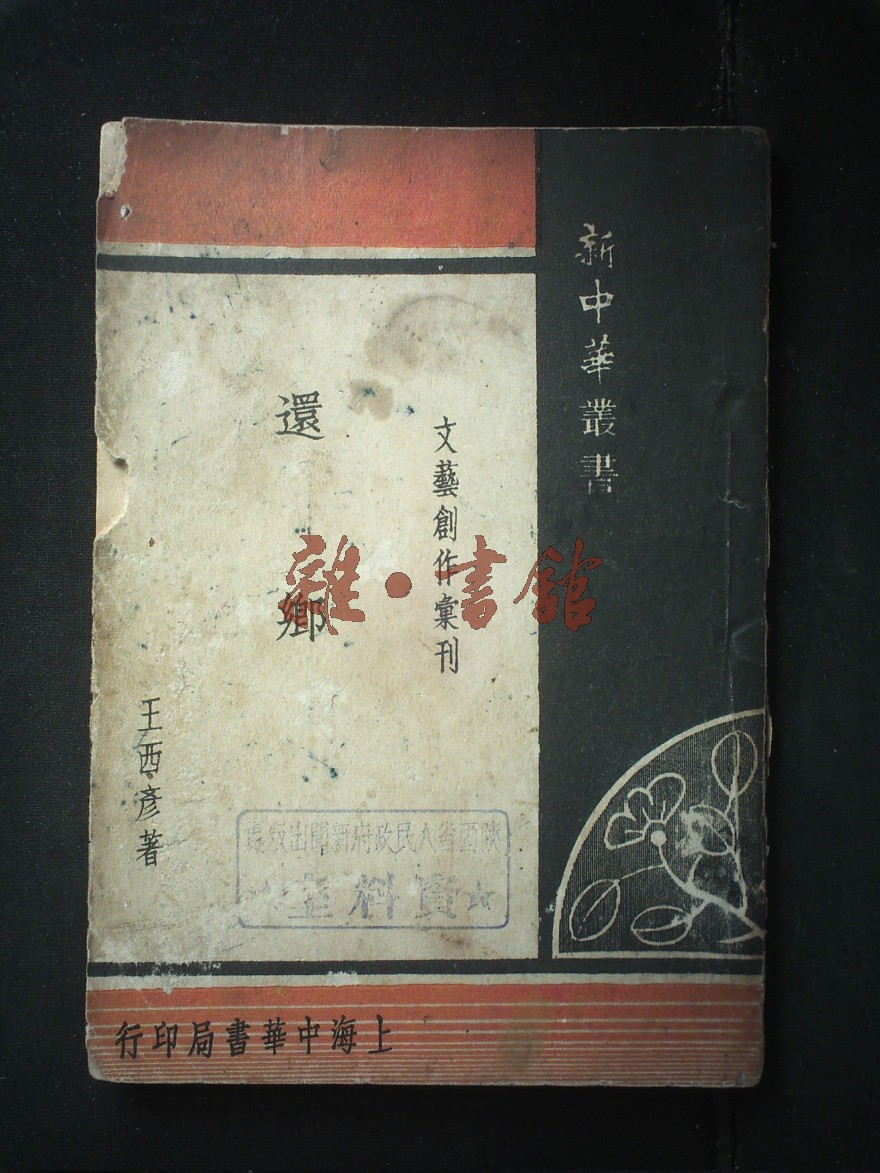 新中華叢書
文藝創作彙刊
還鄉
王西彥著
陝西省人民政府新聞出版處
資料室
上海中華書局印行
雜·書館